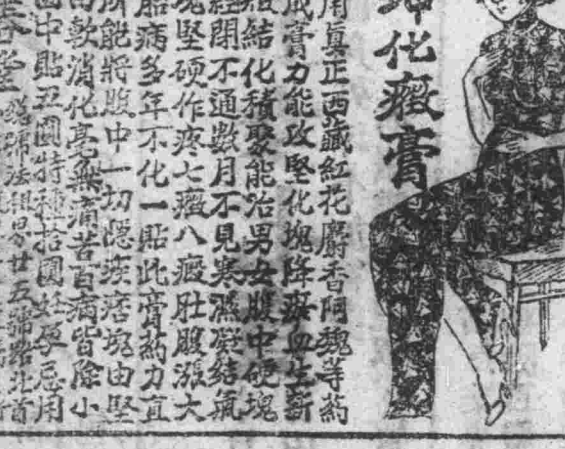 化癥膏
用眞正西藏紅花麝香阿魏等藥
成膏力能攻堅化塊降瘀血生新
結化積聚能治男女腹中硬塊
經閉不通數月不見寒濕凝結氣
塊堅硬作疼七癥八瘕肚腹漲大
胎病多年不化一貼此膏藥力直
能將腹中一切隱疾痞塊由堅
而軟消化毫無痛苦百病皆除小
中貼五圓特種拾圓孕忌用
春堂總號法租界廿五號路北首